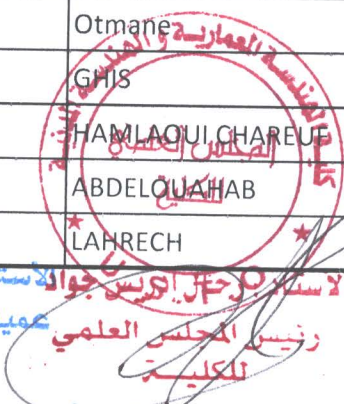 Otmane
GHIS
HAMLAOUI CHAREUF
ABDELOUAHAB
LAHRECH
كلية الهندسة المعمارية و الهندسة المدنية
المجلس العلمي
للكلية
الأستاذ
عميد
رئيس المجلس العلمي
للكليــة